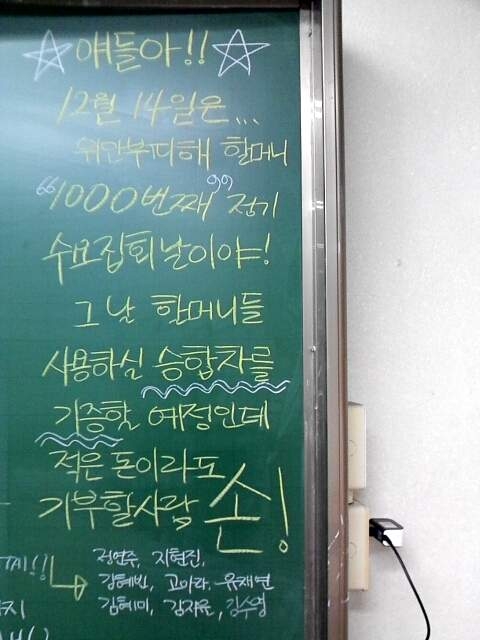 얘들아!!
12월 14일은...
위안부피해 할머니
"1000번째" 정기
수요집회날이야!
그날 할머니들
사용하실 승합차를
기증할 예정인데
적은 돈이라도
기부할사람 손!
정연주, 지현진,
김혜빈, 고아라, 유재연
김혜미, 김자윤, 김수영